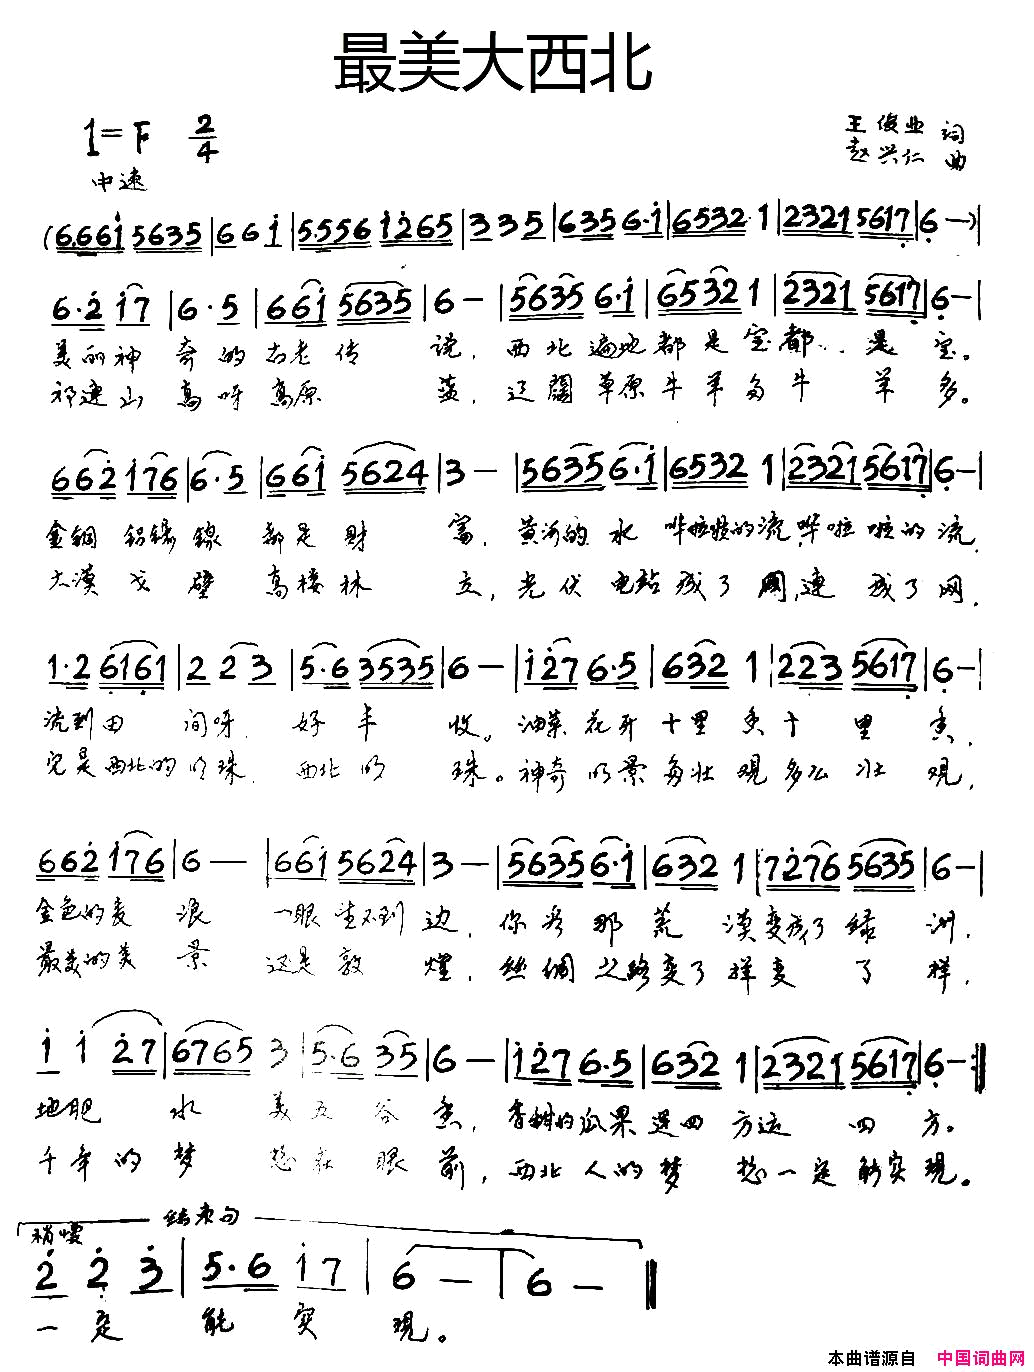 最美大西北
1=F 2/4
王俊业 词
赵兴仁 曲
中速
(6661 5635|661|5556 1265|335|5635 6·1|6532 1|2321 5617|6—)|
6·2 17|6·5|661 5635|6—|5635 6·1|6532 1|2321 5617|6—|
美丽神奇的古老传说，西北遍地都是宝都是宝。
祁连山高呀高原蓝，辽阔草原牛羊多牛羊多。
662 176|6·5|661 5624|3—|5635 6·1|6532 1|2321 5617|6—|
金铜铝镍镓都是财富，黄河的水哗啦啦的流，哗啦啦的流，
大漠戈壁高楼林立，光伏电站成了网，连成了网，
1·2 6161|2 23|5·6 3535|6—|127 6·5|632 1|223 5617|6—|
流到田间呀，好丰收。油菜花开十里香十里香，
它是西北的明珠，西北的珠。神奇的景多壮观多么壮观，
662 176|6—|661 5624|3—|5635 6·1|632 1|7276 5635|6—|
金色的麦浪一眼望不到边，你看那荒漠变成了绿洲，
最美的美景还是敦煌，丝绸之路变了样变了样，
1 1 27|6765 3|5·6 35|6—|127 6·5|632 1|2321 5617|6—:||
地肥水美五谷香，香甜的瓜果送四方运四方。
千年的梦想在眼前，西北人的梦想一定能实现。
结束句
稍慢
2 2 3|5·6 17|6—|6—||
一定能实现。
本曲谱源自 中国词曲网